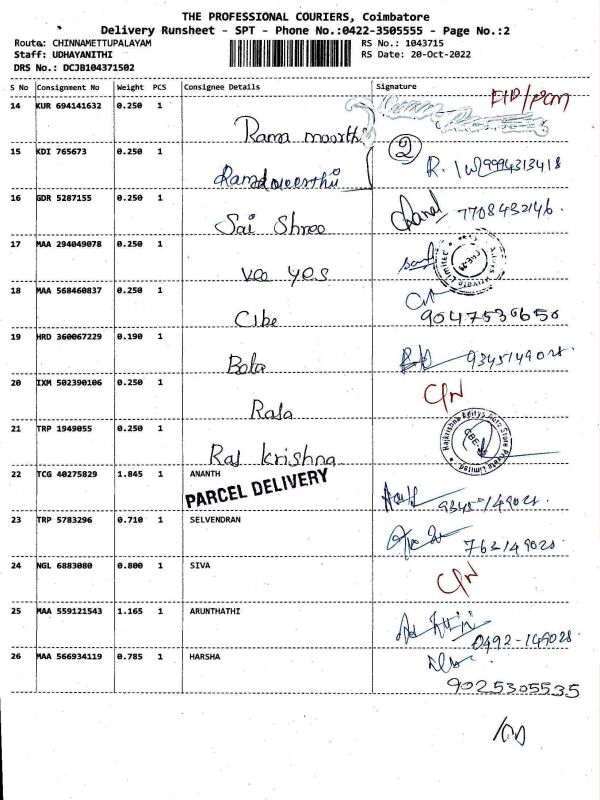 THE PROFESSIONAL COURIERS, Coimbatore
Delivery Runsheet - SPT - Phone No.:0422-3505555 - Page No.:2
Route: CHINNAMETTUPALAYAM
RS No.: 1043715
Staff: UDHAYANITHI
RS Date: 20-Oct-2022
DRS No.: DCJB104371502
S No Consignment No Weight PCS Consignee Details Signature
14 KUR 694141632 0.250 1
Rama moorthi
15 KDI 765673 0.250 1
2
9994313418
16 GDR 5287155 0.250 1
Sai Shree
7708432146.
17 MAA 294049078 0.250 1
vee yes
18 MAA 568460837 0.250 1
Cibe
9047530650
19 HRD 360067229 0.190 1
Bala
20 IXM 502390106 0.250 1
Rala
21 TRP 1949055 0.250 1
Raj krishna
22 TCG 40275829 1.845 1 ANANTH
PARCEL DELIVERY
23 TRP 5783296 0.710 1 SELVENDRAN
24 NGL 6883080 0.800 1 SIVA
25 MAA 559121543 1.165 1 ARUNTHATHI
26 MAA 566934119 0.785 1 HARSHA
9025305535